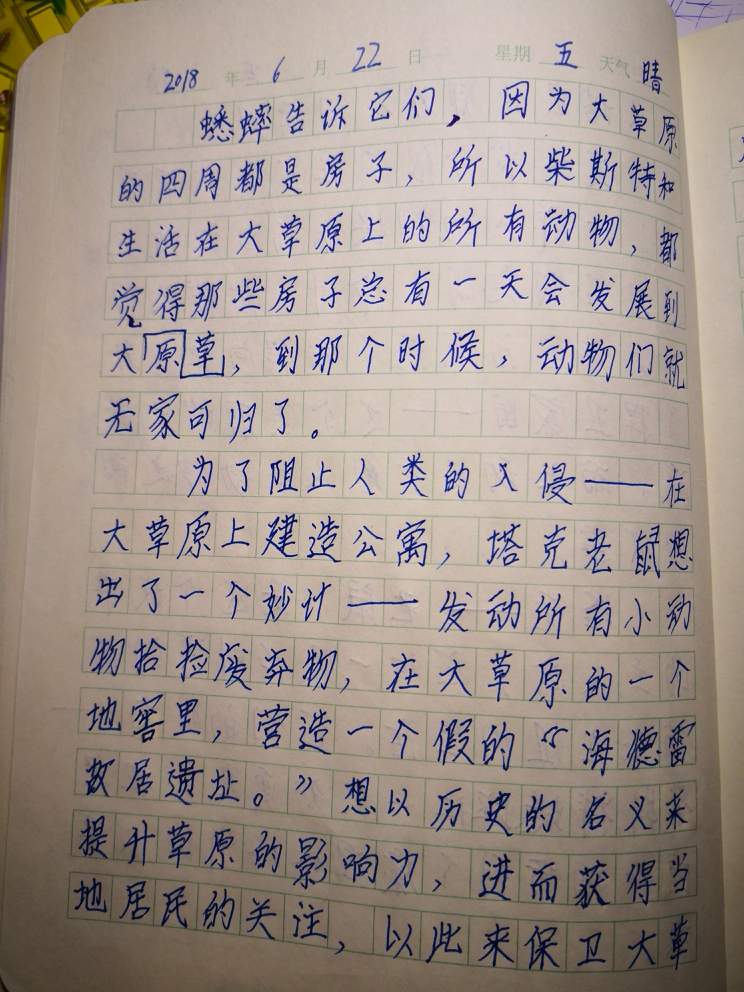 2018 年 6 月 22 日 星期 五 天气 晴
蟋蟀告诉它们，因为大草原
的四周都是房子，所以柴斯特和
生活在大草原上的所有动物，都
觉得那些房子总有一天会发展到
大原草，到那个时候，动物们就
无家可归了。
为了阻止人类的入侵——在
大草原上建造公寓，塔克老鼠想
出了一个妙计——发动所有小动
物拾捡废弃物，在大草原的一个
地窖里，营造一个假的“海德雷
故居遗址。”想以历史的名义来
提升草原的影响力，进而获得当
地居民的关注，以此来保卫大草